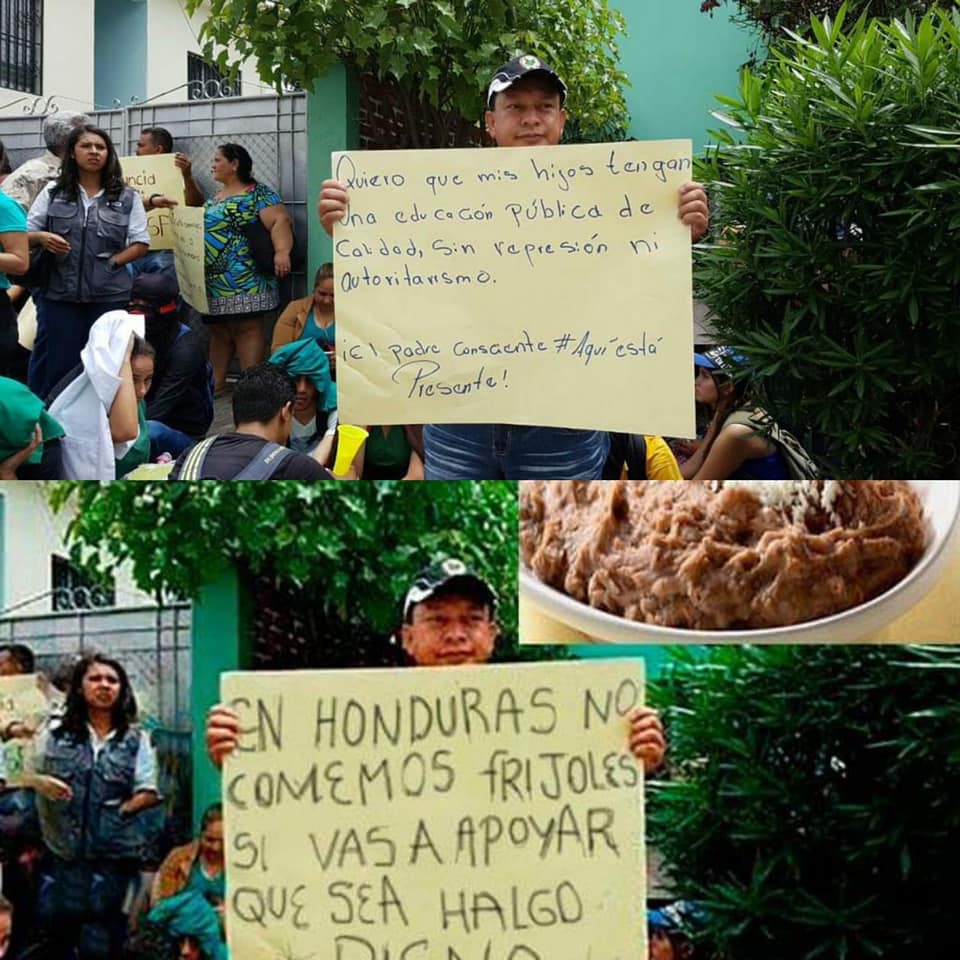 Quiero que mis hijos tengan
Una educación pública de
Calidad, Sin represión ni
autoritarismo.
¡El padre Consciente #Aquí está
Presente!
EN HONDURAS NO
COMEMOS fRIJOLES
SI VAS A APOYAR
QUE SEA HALGO
DIGNO